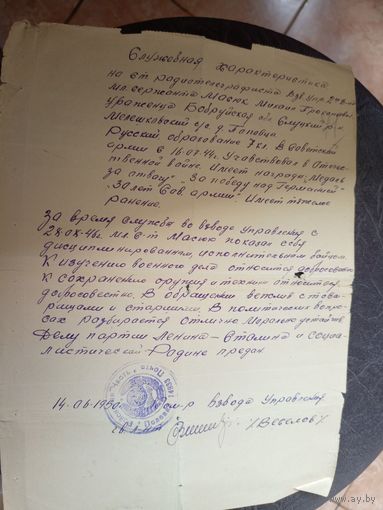 Служебная характеристика
на ст радиотелеграфиста Взв Упр 2го
мл сержанта Масюк Михаил
уроженца Бобруйская обл Слуцкий р-н
с/с д.
Русский образование 7кл В Советской
армии с 16.07.44г. Участвовал в Отече-
ственной войне. Имеет награды: Медаль
"За отвагу" "За победу над Германией"
"30 лет Сов армии". Имеет тяжелое
ранение.
За время службы во взводе управления с
28.08.46г. мл с-т Масюк показал себя
дисциплинированным, исполнительным бойцом.
К изучению военного дела относится добросовестно
К сохранению оружия и техники относится
добросовестно. В обращении вежлив с това-
рищами и старшими. В политических вопро-
сах разбирается отлично Морально устойчив
Делу партии Ленина-Сталина и социа-
листической Родине предан.
14.06.1950 к-р взвода управления
гв. л-нт /Веселов/
www.ay.by